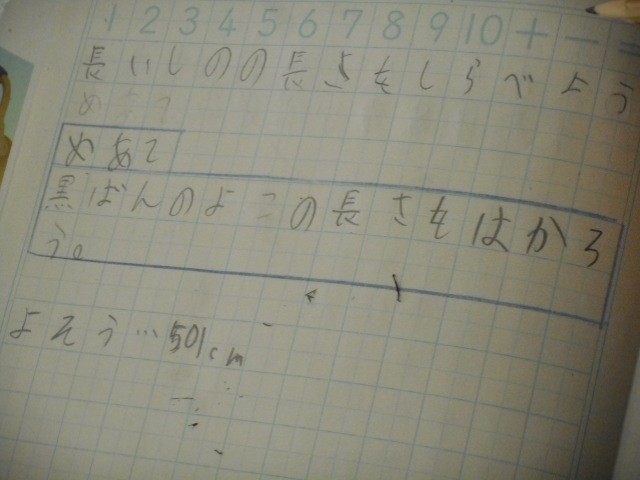 1 2 3 4 5 6 7 8 9 10 + − =
長いしのの長さをしらべよう
めあて
めあて
黒ばんのよこの長さをはかろ
う。
よそう…501cm